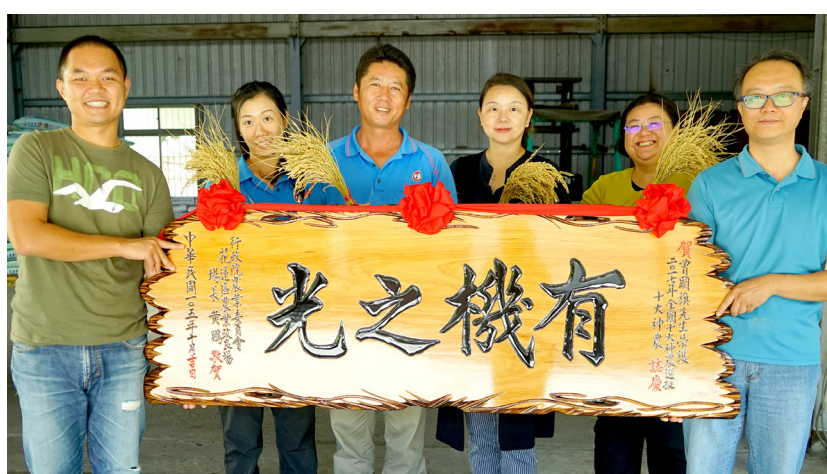 賀
曾國旗先生榮獲
二〇一七年全國十大神農選拔
十大神農 誌慶
有機之光
行政院農業委員會
花蓮區農業改良場
場長 黃鵬 敬賀
中華民國一〇五年十月吉日